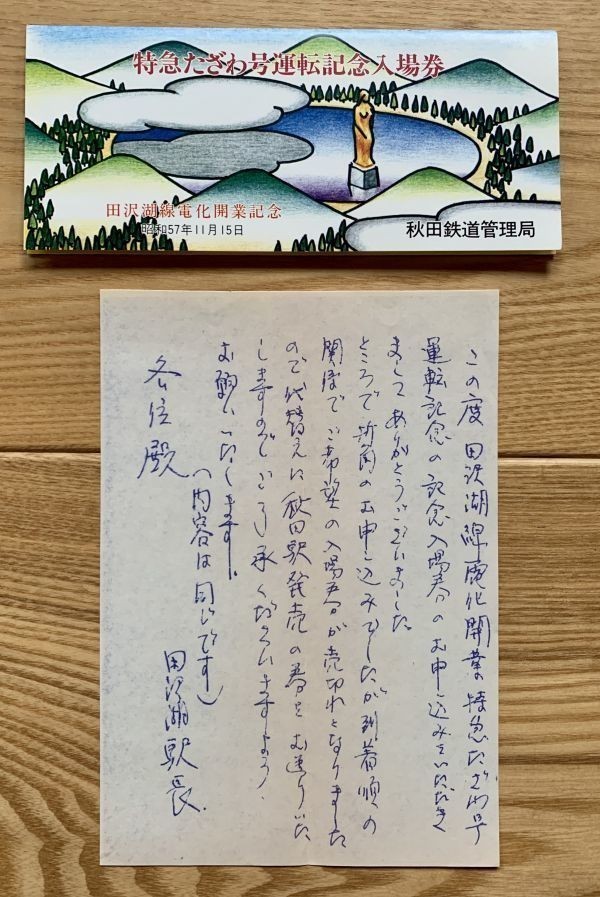 特急たざわ号運転記念入場券
田沢湖線電化開業記念
昭和57年11月15日
秋田鉄道管理局
この度 田沢湖線電化開業 特急たざわ号
運転記念の記念入場券のお申し込みをいただき
ましてありがとうございました
ところで折角のお申し込みでしたが到着順の
関係でご希望の入場券が売切れとなりました
ので代替えに秋田駅発売の券をお送りいた
しますのでご了承くださいますよう、
お願いいたします。
(内容は同じです)
各位殿
田沢湖駅長.